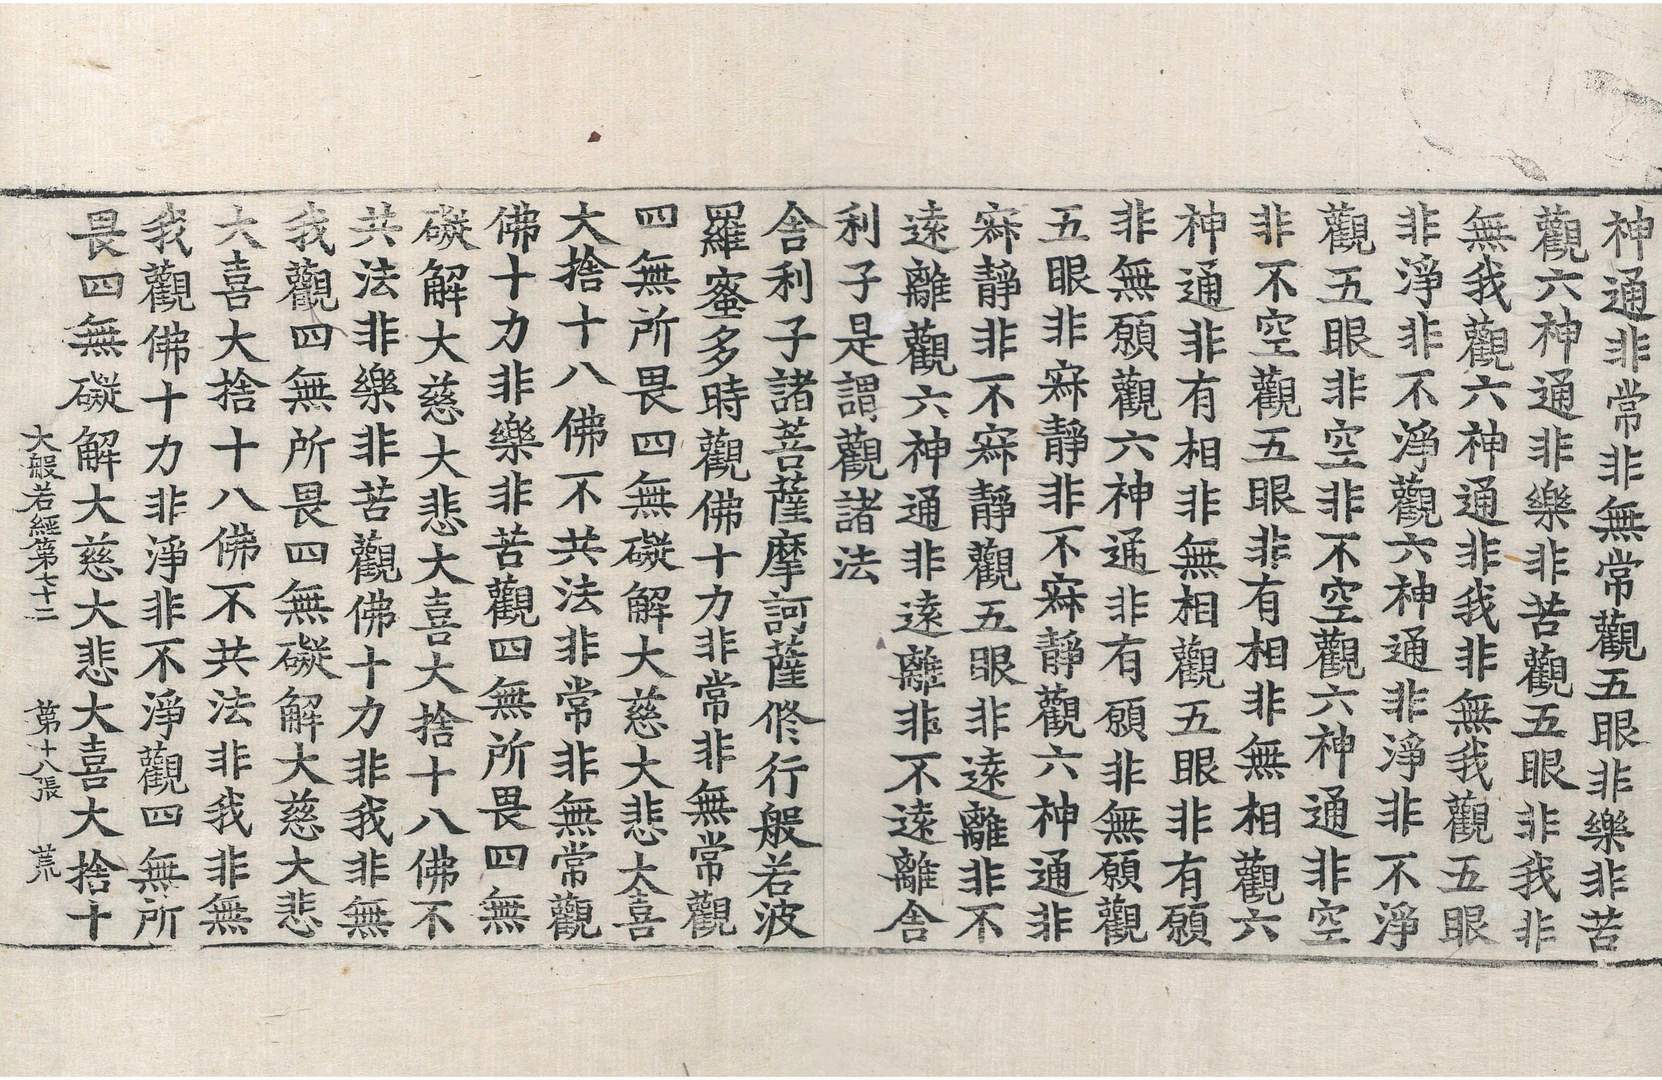 神通非常非無常觀五眼非樂非苦
觀六神通非樂非苦觀五眼非我非
無我觀六神通非我非無我觀五眼
非淨非不淨觀六神通非淨非不淨
觀五眼非空非不空觀六神通非空
非不空觀五眼非有相非無相觀六
神通非有相非無相觀五眼非有願
非無願觀六神通非有願非無願觀
五眼非寂靜非不寂靜觀六神通非
寂靜非不寂靜觀五眼非遠離非不
遠離觀六神通非遠離非不遠離舍
利子是謂觀諸法
舍利子諸菩薩摩訶薩修行般若波
羅蜜多時觀佛十力非常非無常觀
四無所畏四無礙解大慈大悲大喜
大捨十八佛不共法非常非無常觀
佛十力非樂非苦觀四無所畏四無
礙解大慈大悲大喜大捨十八佛不
共法非樂非苦觀佛十力非我非無
我觀四無所畏四無礙解大慈大悲
大喜大捨十八佛不共法非我非無
我觀佛十力非淨非不淨觀四無所
畏四無礙解大慈大悲大喜大捨十
大般若經第七十二 第十八張 荒